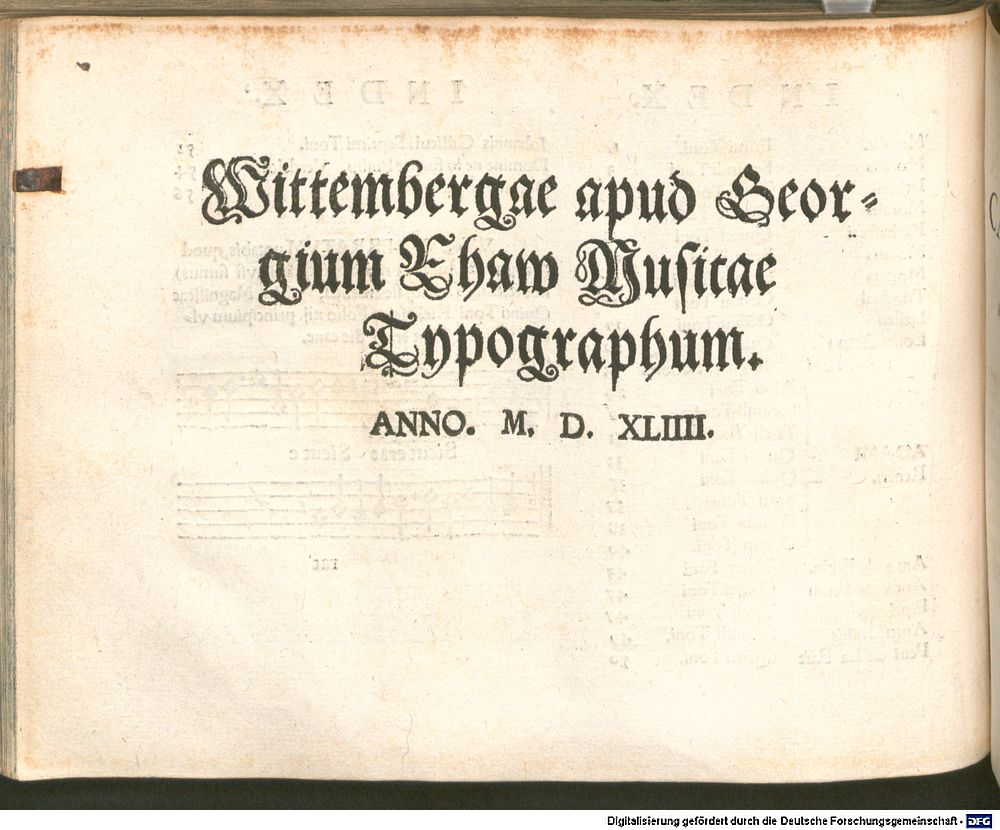 Wittembergae apud Geor-
gium Rhaw Musicae
Typographum.
ANNO. M. D. XLIIII.
Digitalisierung gefördert durch die Deutsche Forschungsgemeinschaft - DFG